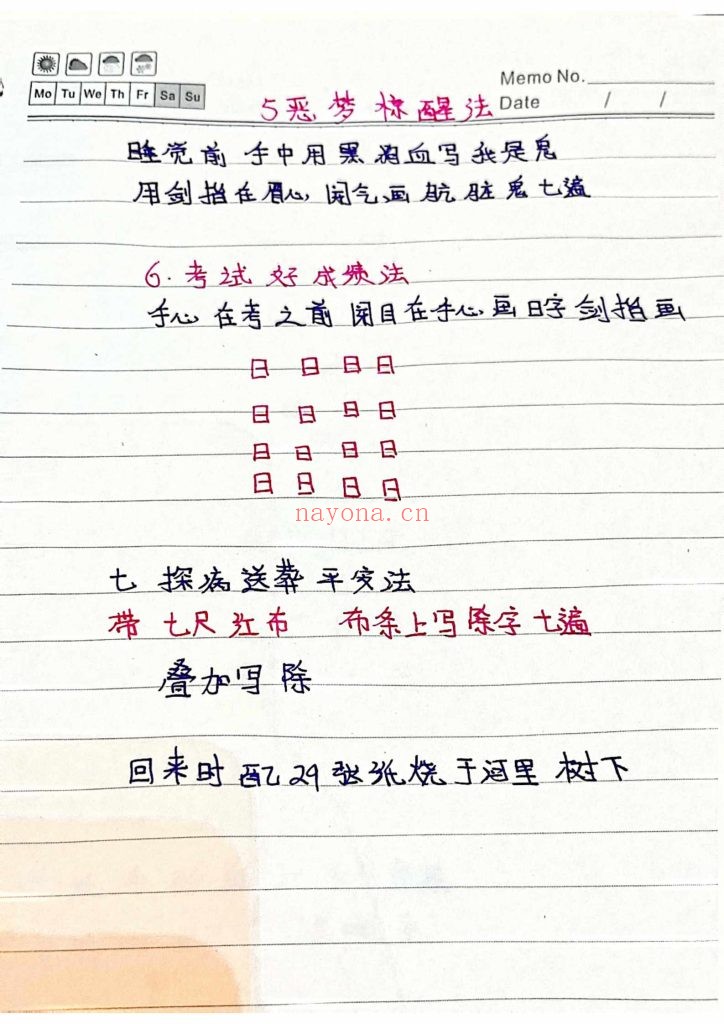 Mo Tu We Th Fr Sa Su
Memo No.
Date / /
5恶梦惊醒法
睡觉前 手中用黑狗血写我是鬼
用剑指在眉心 闭气画 脏鬼七遍
6.考试好成绩法
手心在考之前闭目在手心画日字剑指画
日 日 日 日
日 日 日 日
日 日 日 日
日 日 日 日
nayona.cn
七 探病送葬平安法
带七尺红布 布条上写除字七遍
叠加写除
回来时配29张纸烧于河里 树下